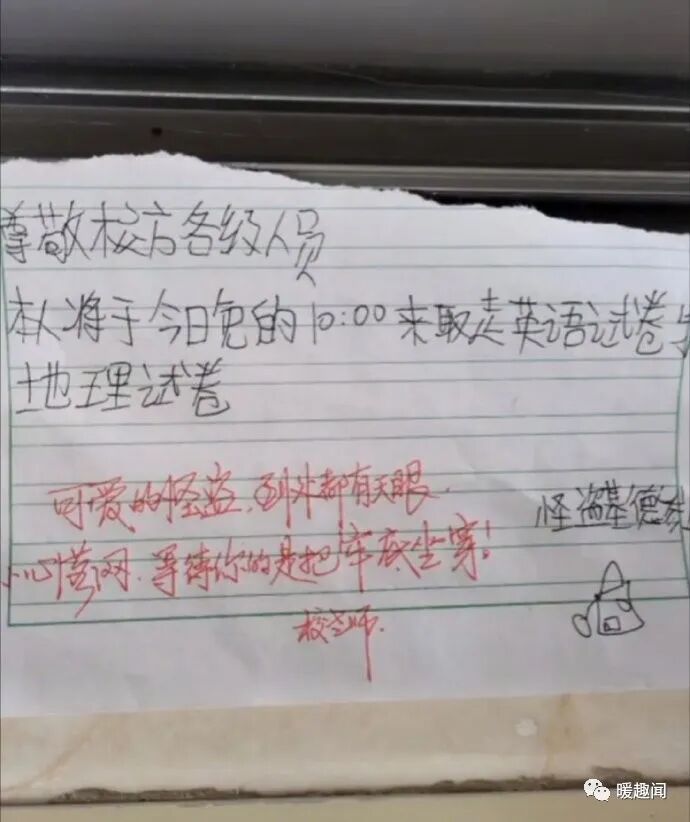 尊敬校方各级人员
本人将于今晚的10:00来取走英语试卷与
地理试卷
可爱的怪盗,到处都有天眼.
怪盗基德
小心网,等待你的是把牢底坐穿!
校老师.
暖趣闻